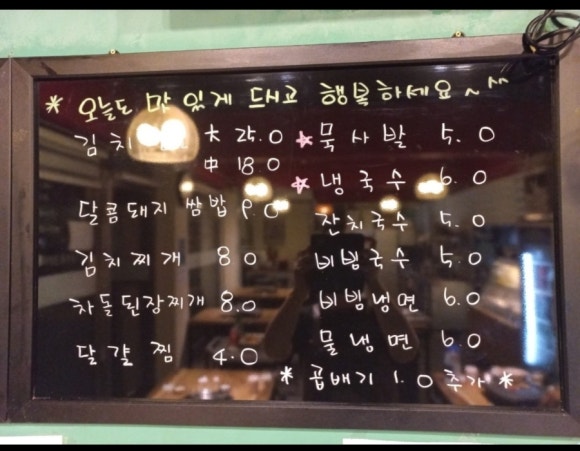 * 오늘도 맛있게 드시고 행복하세요~^^
김치 大 25.0
中 18.0
달콤돼지 쌈밥 9.0
김치찌개 8.0
차돌된장찌개 8.0
달걀찜 4.0
☆ 묵사발 5.0
☆ 냉국수 6.0
잔치국수 5.0
비빔국수 5.0
비빔냉면 6.0
물냉면 6.0
* 곱배기 1.0 추가 *